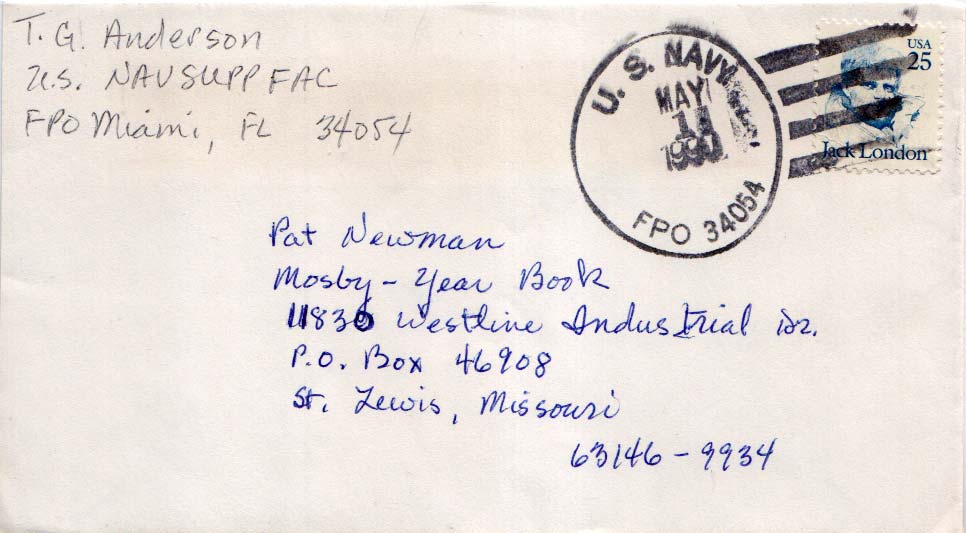 T. G. Anderson
U.S. NAVSUPPFAC
FPO Miami, FL 34054
U.S. NAVY
MAY
FPO 34054
USA
25
Jack London
Pat Newman
Mosby - Year Book
11830 Westline Industrial Dr.
P.O. Box 46908
St. Lewis, Missouri
63146-9934